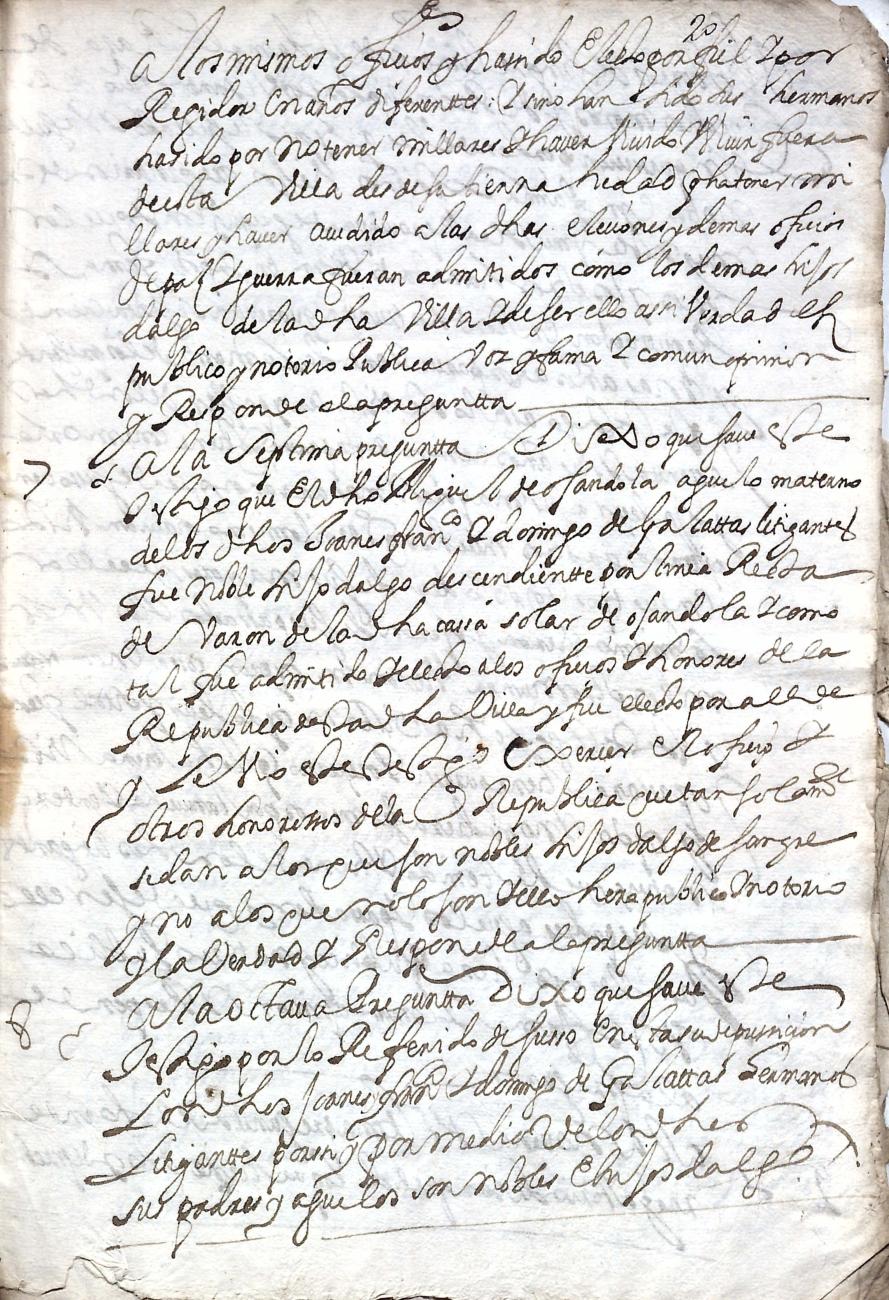 20
a los mismos oficios y ha sido electo por fiel y por
Regidor en años diferenttes: Y si no han sido sus hermanos
ha sido por no tener millares y haver vivido fuera
de esta Villa desde su tierna hedad y ha tener mi
llares y haver acudido a las dhas elecciones y demas oficios
de paz y guerra fueran admitidos como los demas hijos
dalgo de la dha Villa y de ser ello assi Verdad es
publico y notorio Publica voz y fama y comun opinion
y Responde a la preguntta
7 a la Septima preguntta Dixo que save este
testigo que el dho Miguel de osandola aguelo materno
de los dhos Joanes fran.co y domingo de Galattas litigantes
fue noble hijo dalgo descendientte por linia Recta
de Varon de la dha cassa solar de osandola y como
tal fue admitido y electo a los oficios y honores de la
Republica desta dha Villa y fue electo por allde
y le Vio este testigo Exercer el oficio y
otros honores de la Republica que tan solamte
se dan a los que son nobles hijos dalgo de sangre
y no a los que no lo son y ello hera publico y notorio
y la Verdad y Responde a la preguntta
8 a la octava Preguntta Dixo que save este
testigo por lo Referido de susso en esta su depussicion
Los dhos Joanes fran.co y domingo de Galattas hermanos
Litigantes por si y por medio de los dhos
sus padres y aguelos son nobles e hijos dalgo